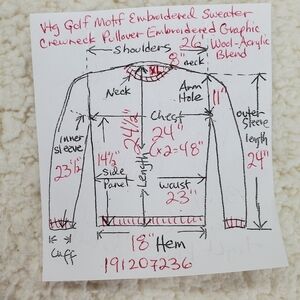 Vtg Golf Motif Embroidered Sweater
Crewneck Pullover Embroidered Graphic
Shoulders 26" Wool-Acrylic
8" Blend
neck
XL
Neck Arm
Hole 11"
Chest
24"
(x2=48")
24 1/2"
Length
inner
sleeve
23 1/2"
14 1/2"
side
Panel
outer
sleeve
length
24"
waist
23"
18" Hem
Cuff
191207236